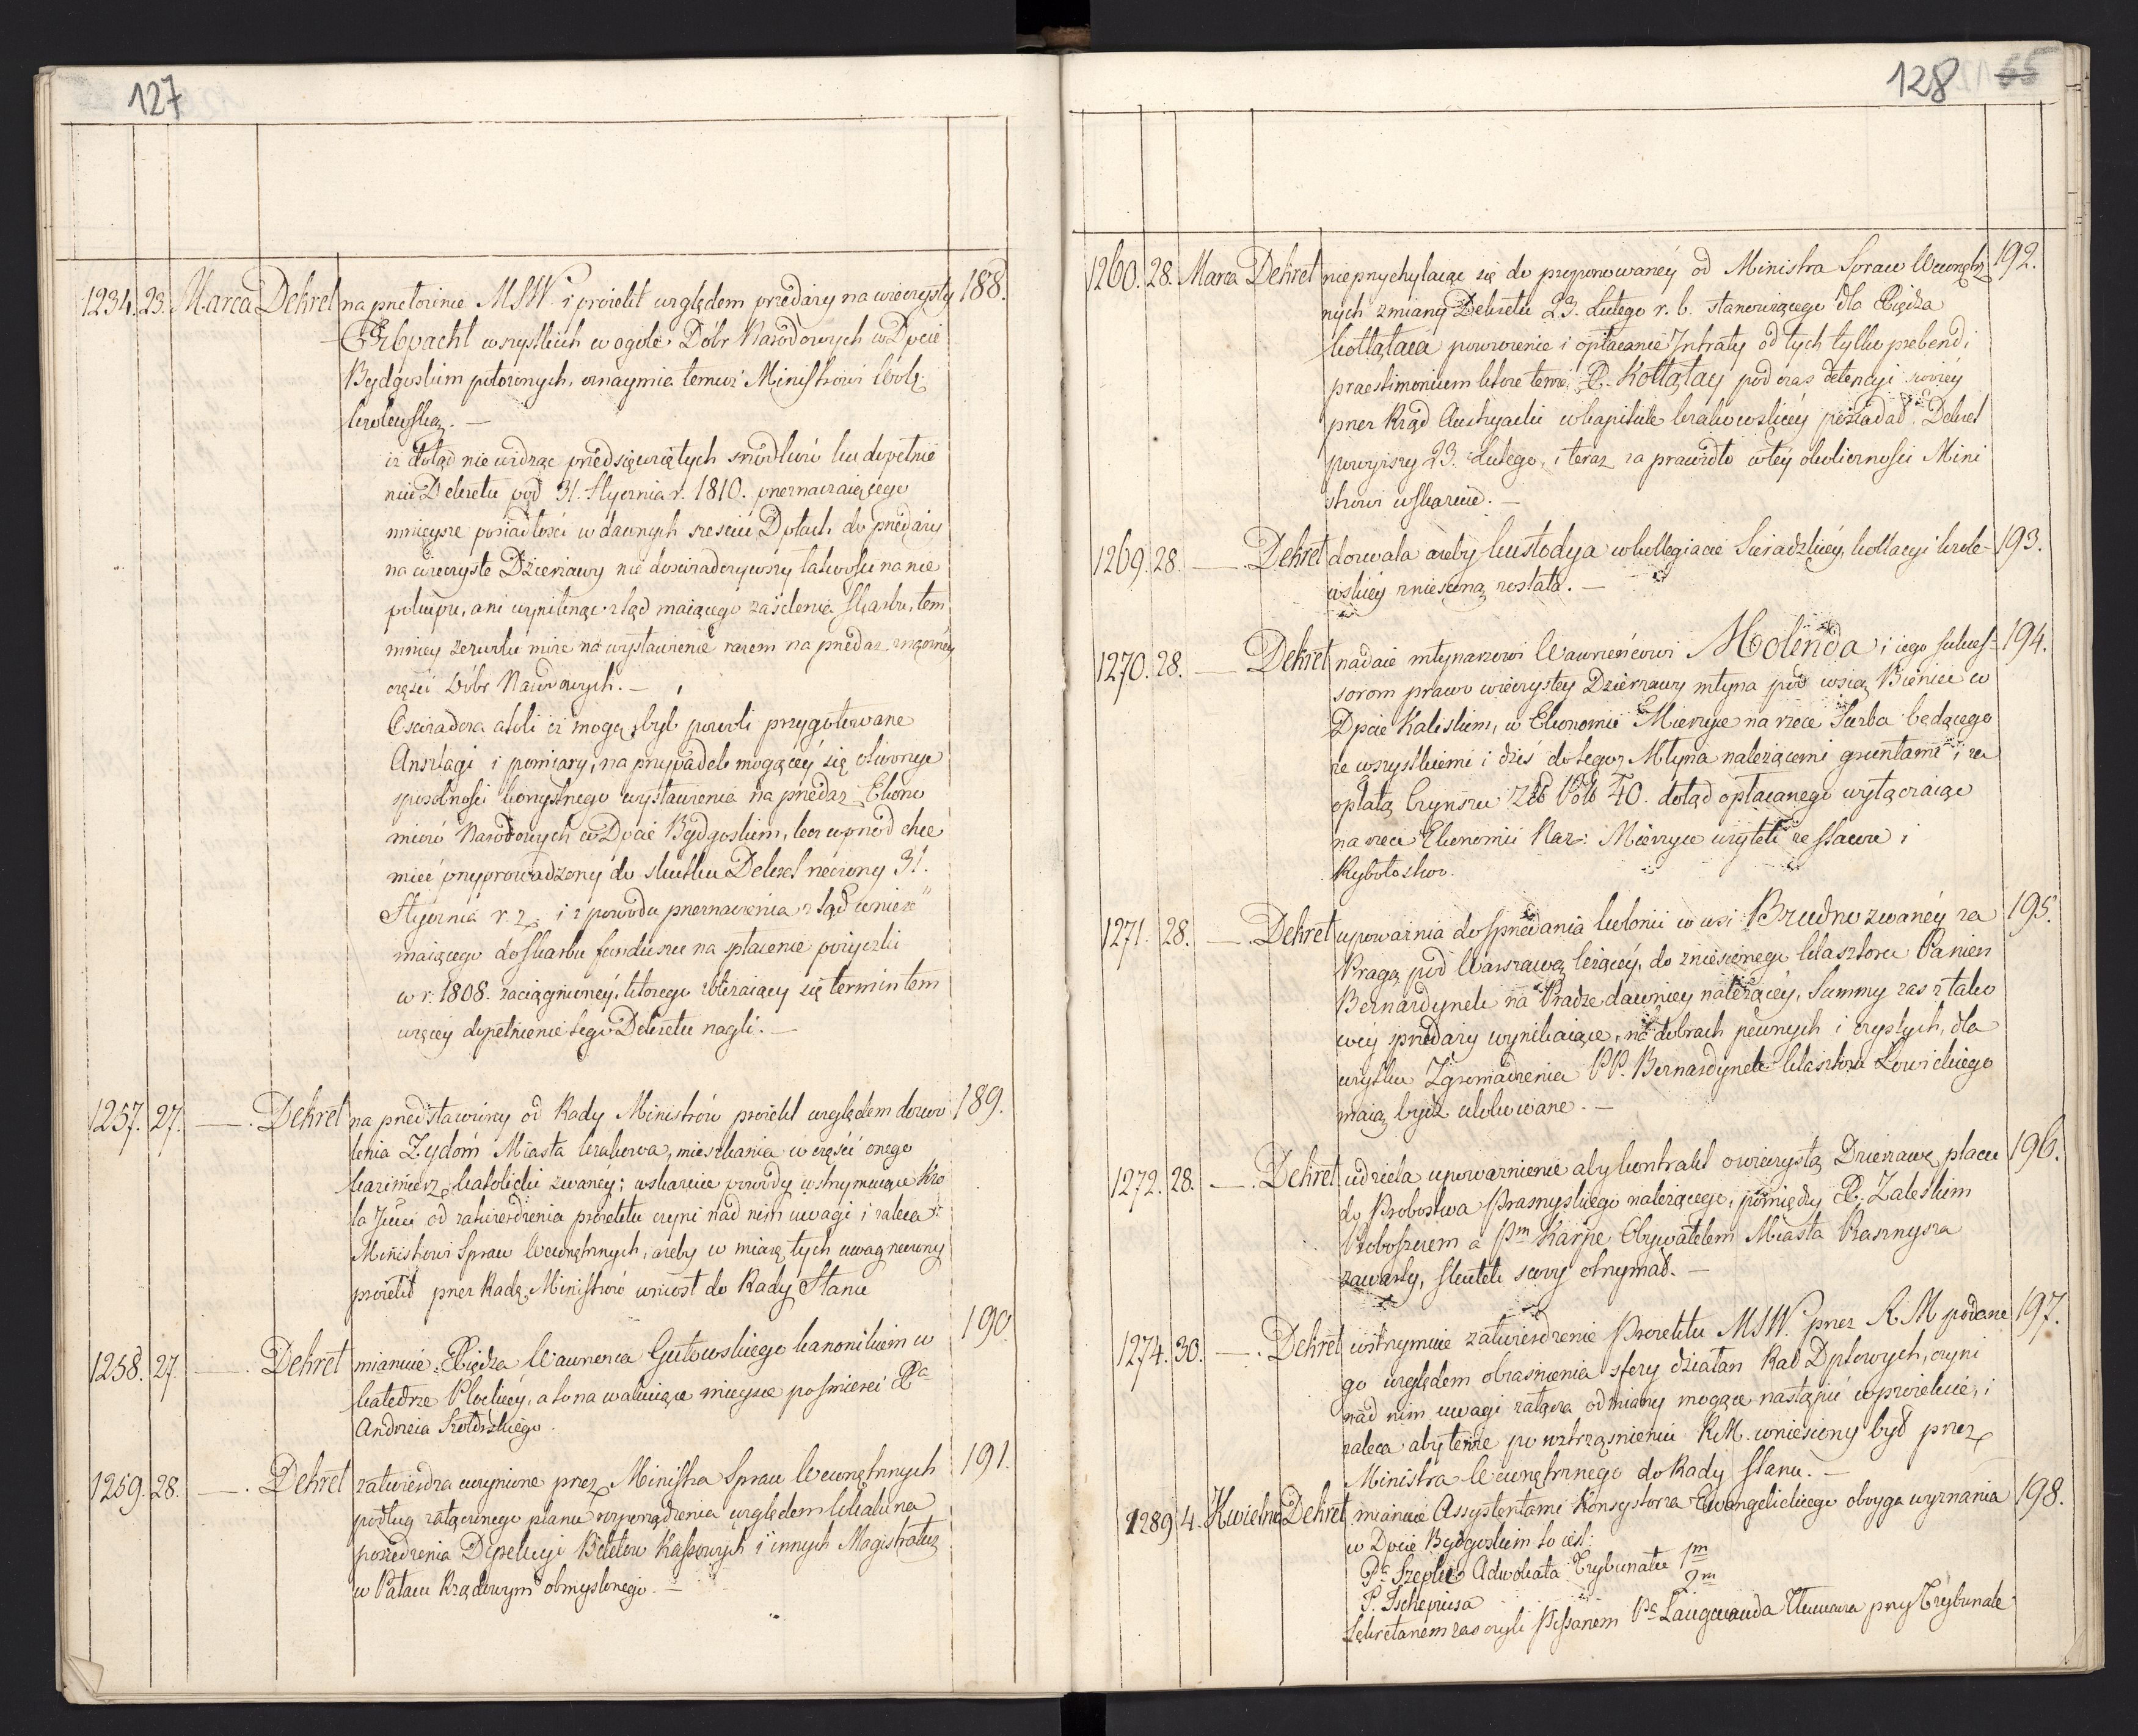 127
1234. 23. Marca Dekret na przełożenie MSW. i proiekt względem przedaży na wieczysty 188.
Erbpacht wszystkich w ogole Dóbr Narodowych w Dpcie
Bydgoskim położonych, oznaymia temuż Ministrowi Wolą
krolewską. —
iż dotąd nie widząc przedsięwziętych srzodków ku dopełnie
niu Dekretu pod 31. Stycznia r. 1810. przeznaczaiącego
mnieysze posiadłości w dawnych sześciu Dptach do przedaży
na wieczyste Dzierżawy nie doświadczywszy łatwości na nie
pokupu, ani wyniknąć ztąd maiącego zasilenia Skarbu, tem
mniey zezwolić może na wystawienie razem na przedaż znaczney
części Dóbr Narodowych. —
Oświadcza atoli iż mogą być powoli przygotowane
Anszlagi i pomiary, na przypadek mogącéy się otworzyć
sposobności korzystnego wystawienia na przedaż Ekono
miów Narodowych w Dpcie Bydgoskim, lecz wprzód chce
mieć przyprowadzony do skutku Dekret rzeczony 31.
Stycznia r. z. i z powodu przeznaczenia ztąd wnieść
maiącego do Skarbu funduszu na spłacenie pożyczki
w r. 1808. zaciągnioney, którego zbliżaiący się termin tem
więcey dopełnienie tego Dekretu nagli. —
1257. 27. — . Dekret na przedstawiony od Rady Ministrów proiekt względem dozwo 189.
lenia Żydom Miasta Krakowa, mieszkania w części onego
Kazimierz Katolicki zwanéy; wskazuie powody wstrzymuiące Kró
la Jmci od zatwierdzenia proiektu czyni nad nim uwagi i zaleca
Ministrowi Spraw Wewnętrznych, ażeby w miarę tych uwag rzeczony
proiekt przez Radę Ministrów wniósł do Rady Stanu
1258. 27. — . Dekret mianuie Xiędza Wawrzenca Gutowskiego kanonikiem w 190.
katedrze Płockiéy, a to na wakuiące mieysce po śmierci Xa
Andrzeia Szołdrskiego.
1259. 28. — . Dekret zatwierdza uczynione przez Ministra Spraw Wewnętrznych 191.
podług załączonego planu rozporządzenia względem lokalu na
posiedzenia Deputacyi Biletów Kassowych i innych Magistratur
w Pałacu Rządowym obmyslonego. —
128 65
1260. 28. Marca Dekret nieprzychylaiąc się do proponowanéy od Ministra Spraw Wewnętrz 192.
nych zmiany Dekretu 23. Lutego r. b. stanowiącego dla Xiędza
Kołłątaia powrócenie i opłacanie Intraty od tych tylko prebend i
praestimonium które tenże X. Kołłątay podczas detencyi swoiéy
przez Rząd Austryacki w kapitule krakowskiéy posiadał. Dekret
powyższy 23. Lutego, i teraz za prawidło w téy okoliczności Mini
strowi wskazuie. —
1269. 28. — . Dekret dozwala ażeby kustodya w kollegiacie Sieradzkiéy, kollacyi krole- 193.
wskiéy zniesioną została. —
1270. 28. — . Dekret nadaie młynarzowi Wawrzeńcowi Molenda i iego sukces- 194.
sorom prawo wieczystey Dzierżawy młyna pod wsią Bieniec w
Dpcie Kaliskim, w Ekonomii Mierzyce na rzece Warta będącego
ze wszystkiemi i dziś do tegoż Młyna należącemi gruntami i za
opłatą Czynszu Złt Pols 40. dotąd opłacanego wyłączaiąc
na rzecz Ekonomii Nar: Mierzyce użytek ze stawu i
Rybołostwo.
1271. 28. — . Dekret upoważnia do sprzedania kolonii w wsi Brudno zwanéy za 195.
Pragą pod Warszawą leżącéy, do zniesionego klasztoru Panien
Bernardynek na Pradze dawniey należącéy, Summy zaś z tako
wéy sprzedaży wynikaiące, na dobrach pewnych i czystych, dla
użytku Zgromadzenia PP. Bernardynek klasztoru Łowickiego
maią bydź ulokowane. —
1272. 28. — . Dekret udziela upoważnienie aby kontrakt o wieczystą Dzierżawę placu 196.
do Probostwa Prasnyskiego należącego, pomiędzy X. Zaleskim
Proboszczem a Pm Karpe Obywatelem Miasta Prasznysza
zawarty, skutek swóy otrzymał. —
1274. 30. — . Dekret wstrzymuie zatwierdzenie Proiektu MSW. przez R M podane 197.
go względem obiaśnienia sfery działań Rad Dptowych, czyni
nad nim uwagi załącza odmiany mogące nastąpić w proiekcie, i
zaleca aby tenże po wztrząśnieniu RM. wniesiony był przez
Ministra Wewnętrznego do Rady Stanu. —
1289 4. Kwietnia Dekret mianuie Assystentami Konsystorza Ewangelickiego oboyga wyznania 198.
w Dpcie Bydgoskim to iest:
Pa Szepke Adwokata Trybunału 1m
P. Tschepiusa 2m
Sekretarzem zaś czyli Pisarzem Pa Langwanda Tłumacza przy Trybunale